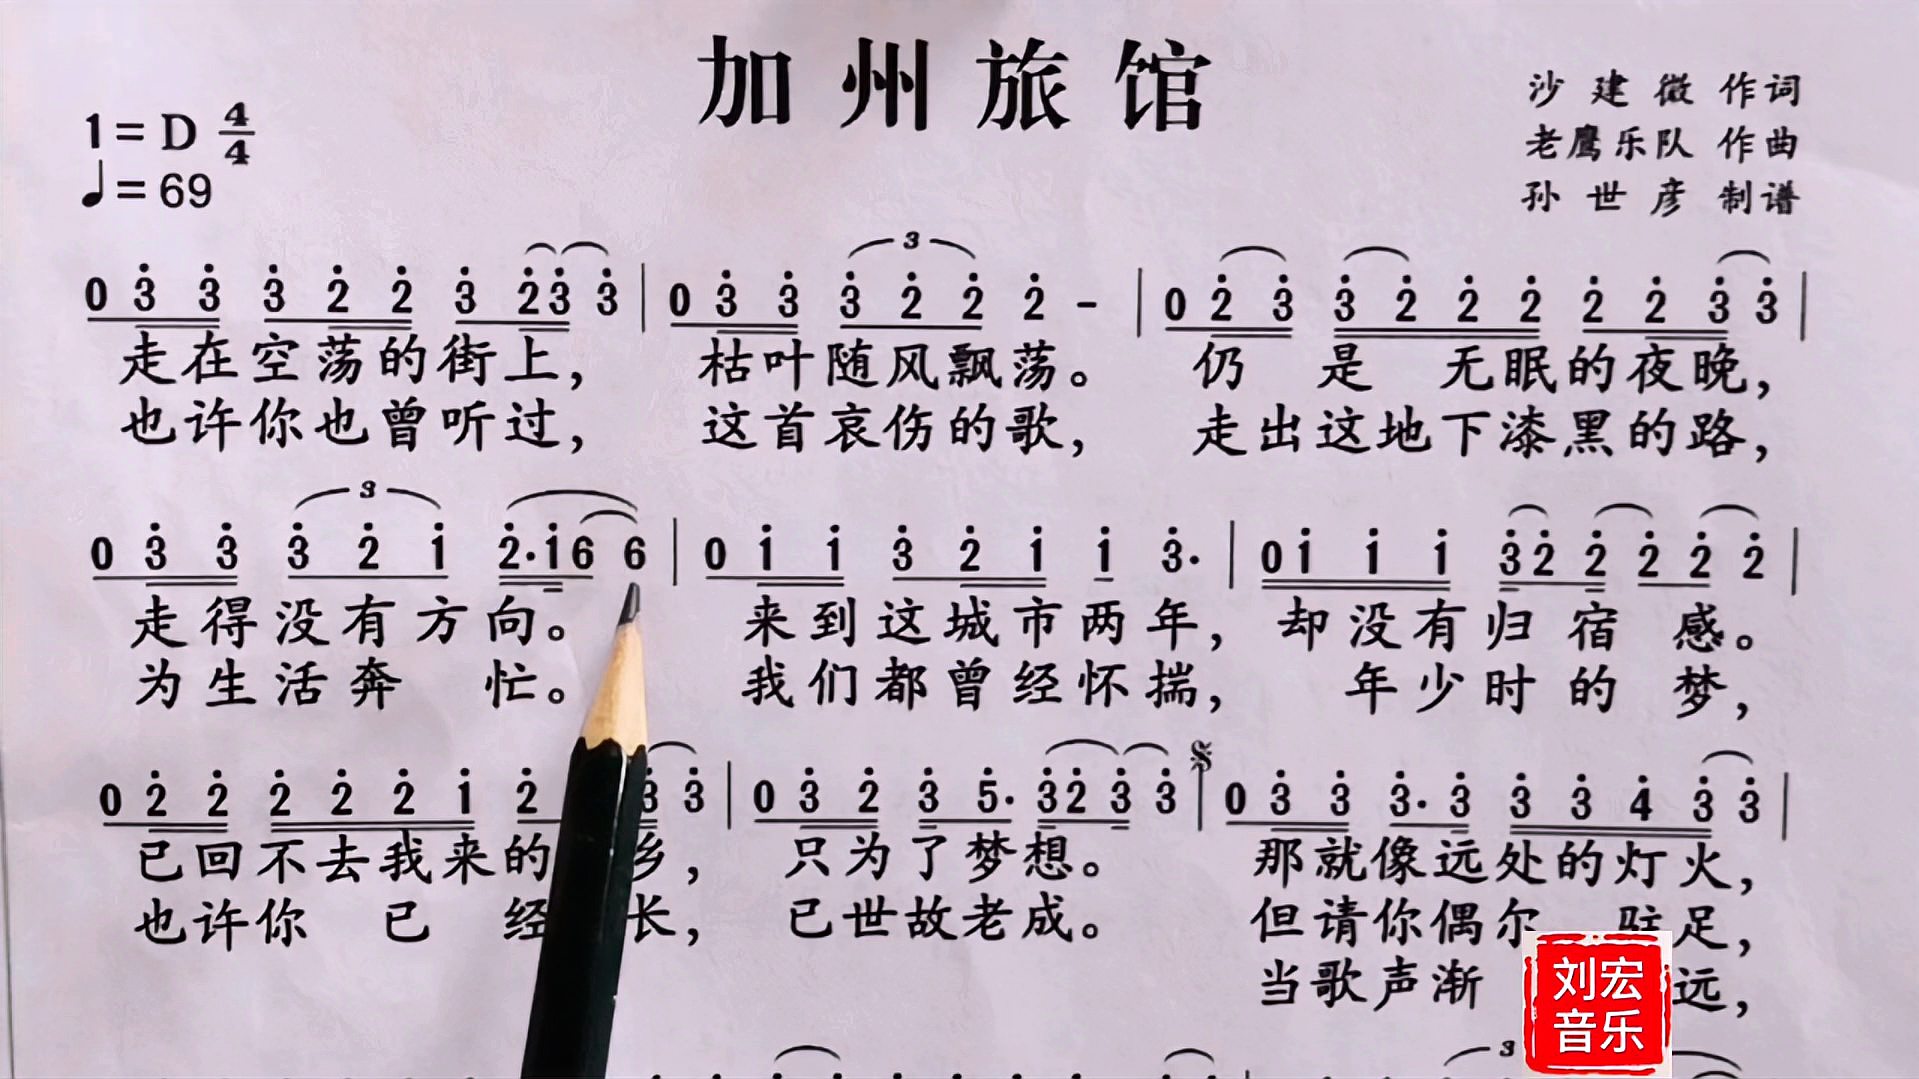 加州旅馆
1=D 4/4
♩=69
沙建微 作词
老鹰乐队 作曲
孙世彦 制谱
0 3 3 3 2 2 3 2 3 3 | 0 3 3 3 2 2 2 - | 0 2 3 3 2 2 2 2 2 3 3 |
走在空荡的街上， 枯叶随风飘荡。 仍是无眠的夜晚，
也许你也曾听过， 这首哀伤的歌， 走出这地下漆黑的路，
0 3 3 3 2 1 2·1 6 6 | 0 1 1 3 2 1 1 3· | 0 1 1 1 3 2 2 2 2 2 |
走得没有方向。 来到这城市两年， 却没有归宿感。
为生活奔忙。 我们都曾经怀揣， 年少时的梦，
0 2 2 2 2 2 1 2 3 3 | 0 3 2 3 5· 3 2 3 3 | 0 3 3 3· 3 3 3 4 3 3 |
已回不去我来的 乡， 只为了梦想。 那就像远处的灯火，
也许你已经 长， 已世故老成。 但请你偶尔驻足，
当歌声渐 远，
3
刘宏
音乐